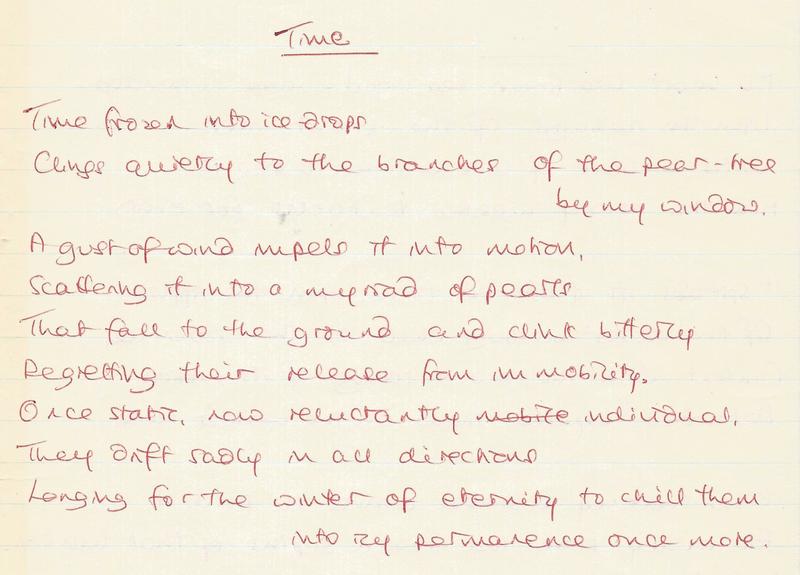 Time
Time frozen into ice-drops
Clings quietly to the branches of the pear-tree
by my window.
A gust of wind impels it into motion,
Scattering it into a myriad of pearls
That fall to the ground and clink bitterly
Regretting their release from immobility.
Once static, now reluctantly mobile individual,
They drift sadly in all directions
Longing for the winter of eternity to chill them
into icy permanence once more.